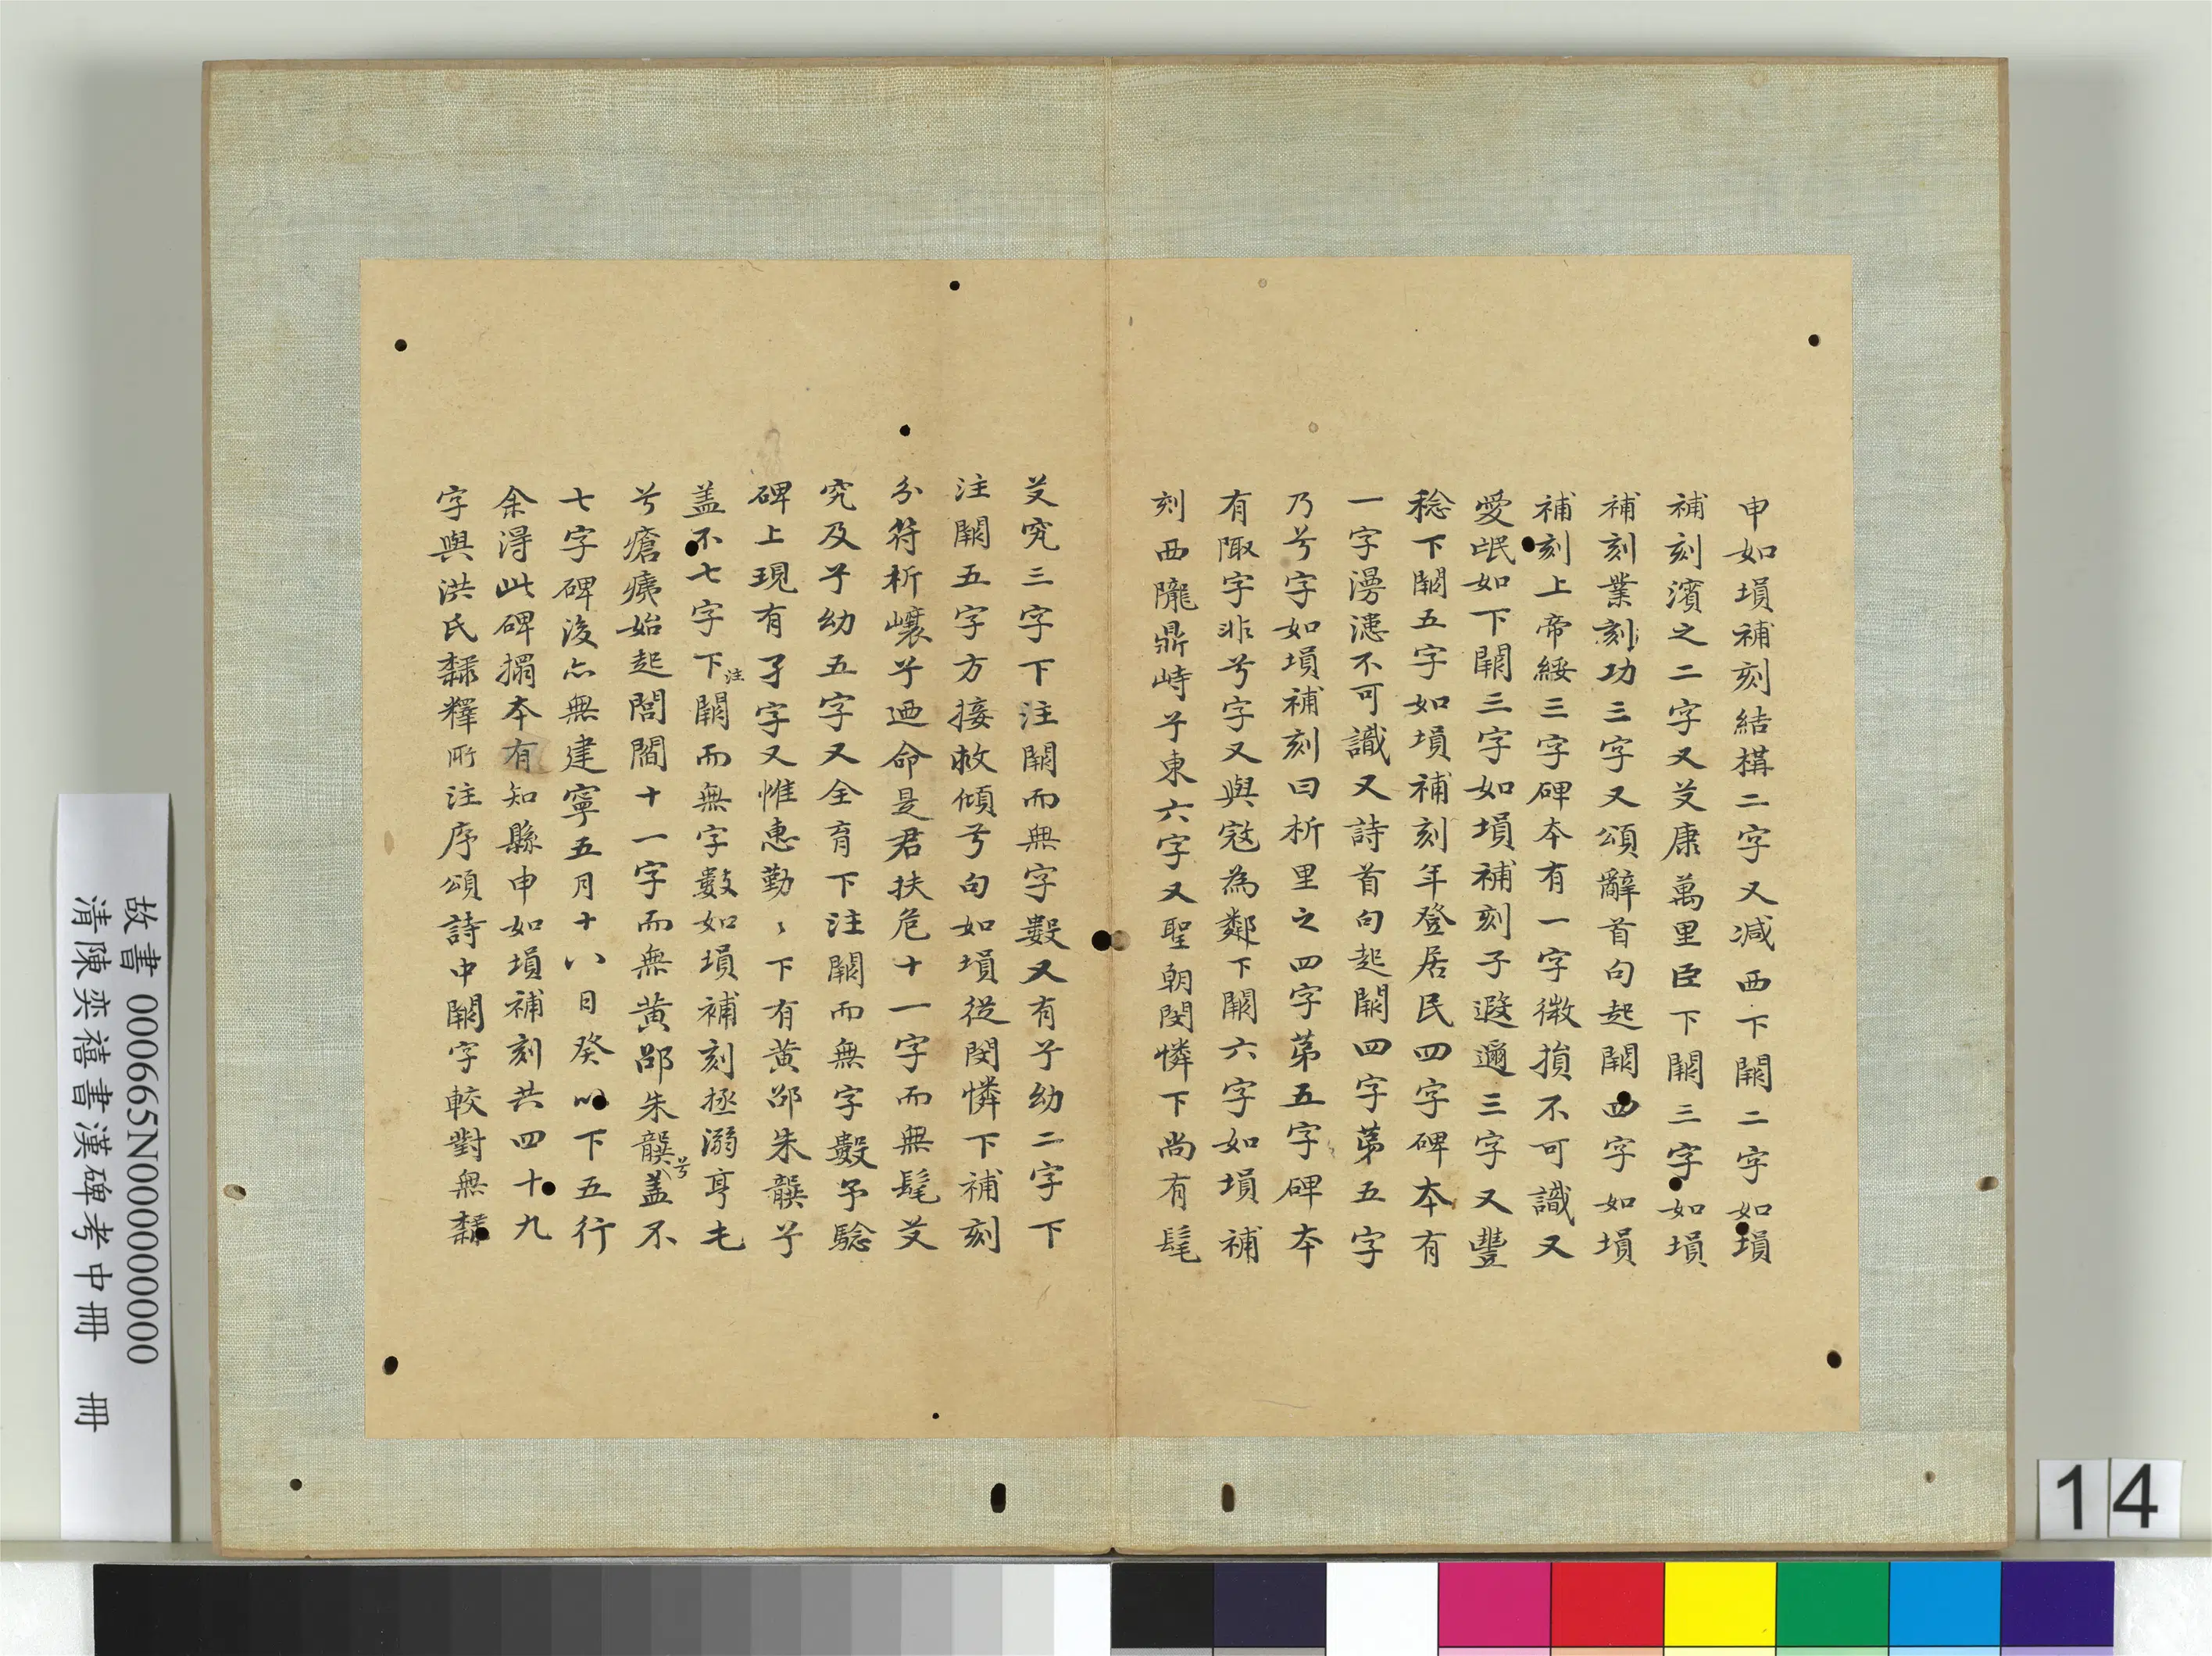 申如塤補刻結構二字又減西下闕二字如塤
補刻濱之二字又艾康萬里臣下闕三字如塤
補刻業刻功三字又頌辭首句起闕四字如塤
補刻上帝綏三字碑本有一字微損不可識又
愛氓如下闕三字如塤補刻子遐邇三字又豐
稔下闕五字如塤補刻年登居民四字碑本有
一字漫漶不可識又詩首句起闕四字苐五字
乃兮字如塤補刻曰析里之四字苐五字碑本
有陬字非兮字又與寇為鄰下闕六字如塤補
刻西隴鼎峙兮東六字又聖朝閔憐下尚有髦
艾究三字下注闕而無字數又有兮幼二字下
注闕五字方接救傾兮句如塤從閔憐下補刻
分符析壤兮迺命是君扶危十一字而無髦艾
究及兮幼五字又全育下注闕而無字數予驗
碑上現有孑字又惟惠勤〻下有黃邵朱龔兮
盖不七字下注闕而無字數如塤補刻拯溺亨屯
兮瘡痍始起閭閻十一字而無黃邵朱龔兮盖不
七字碑後亦無建寧五月十八日癸以下五行
余得此碑搨本有知縣申如塤補刻共四十九
字與洪氏隸釋所注序頌詩中闕字較對無隸
故書 000665N000000000
清陳奕禧書漢碑考中冊 冊
14